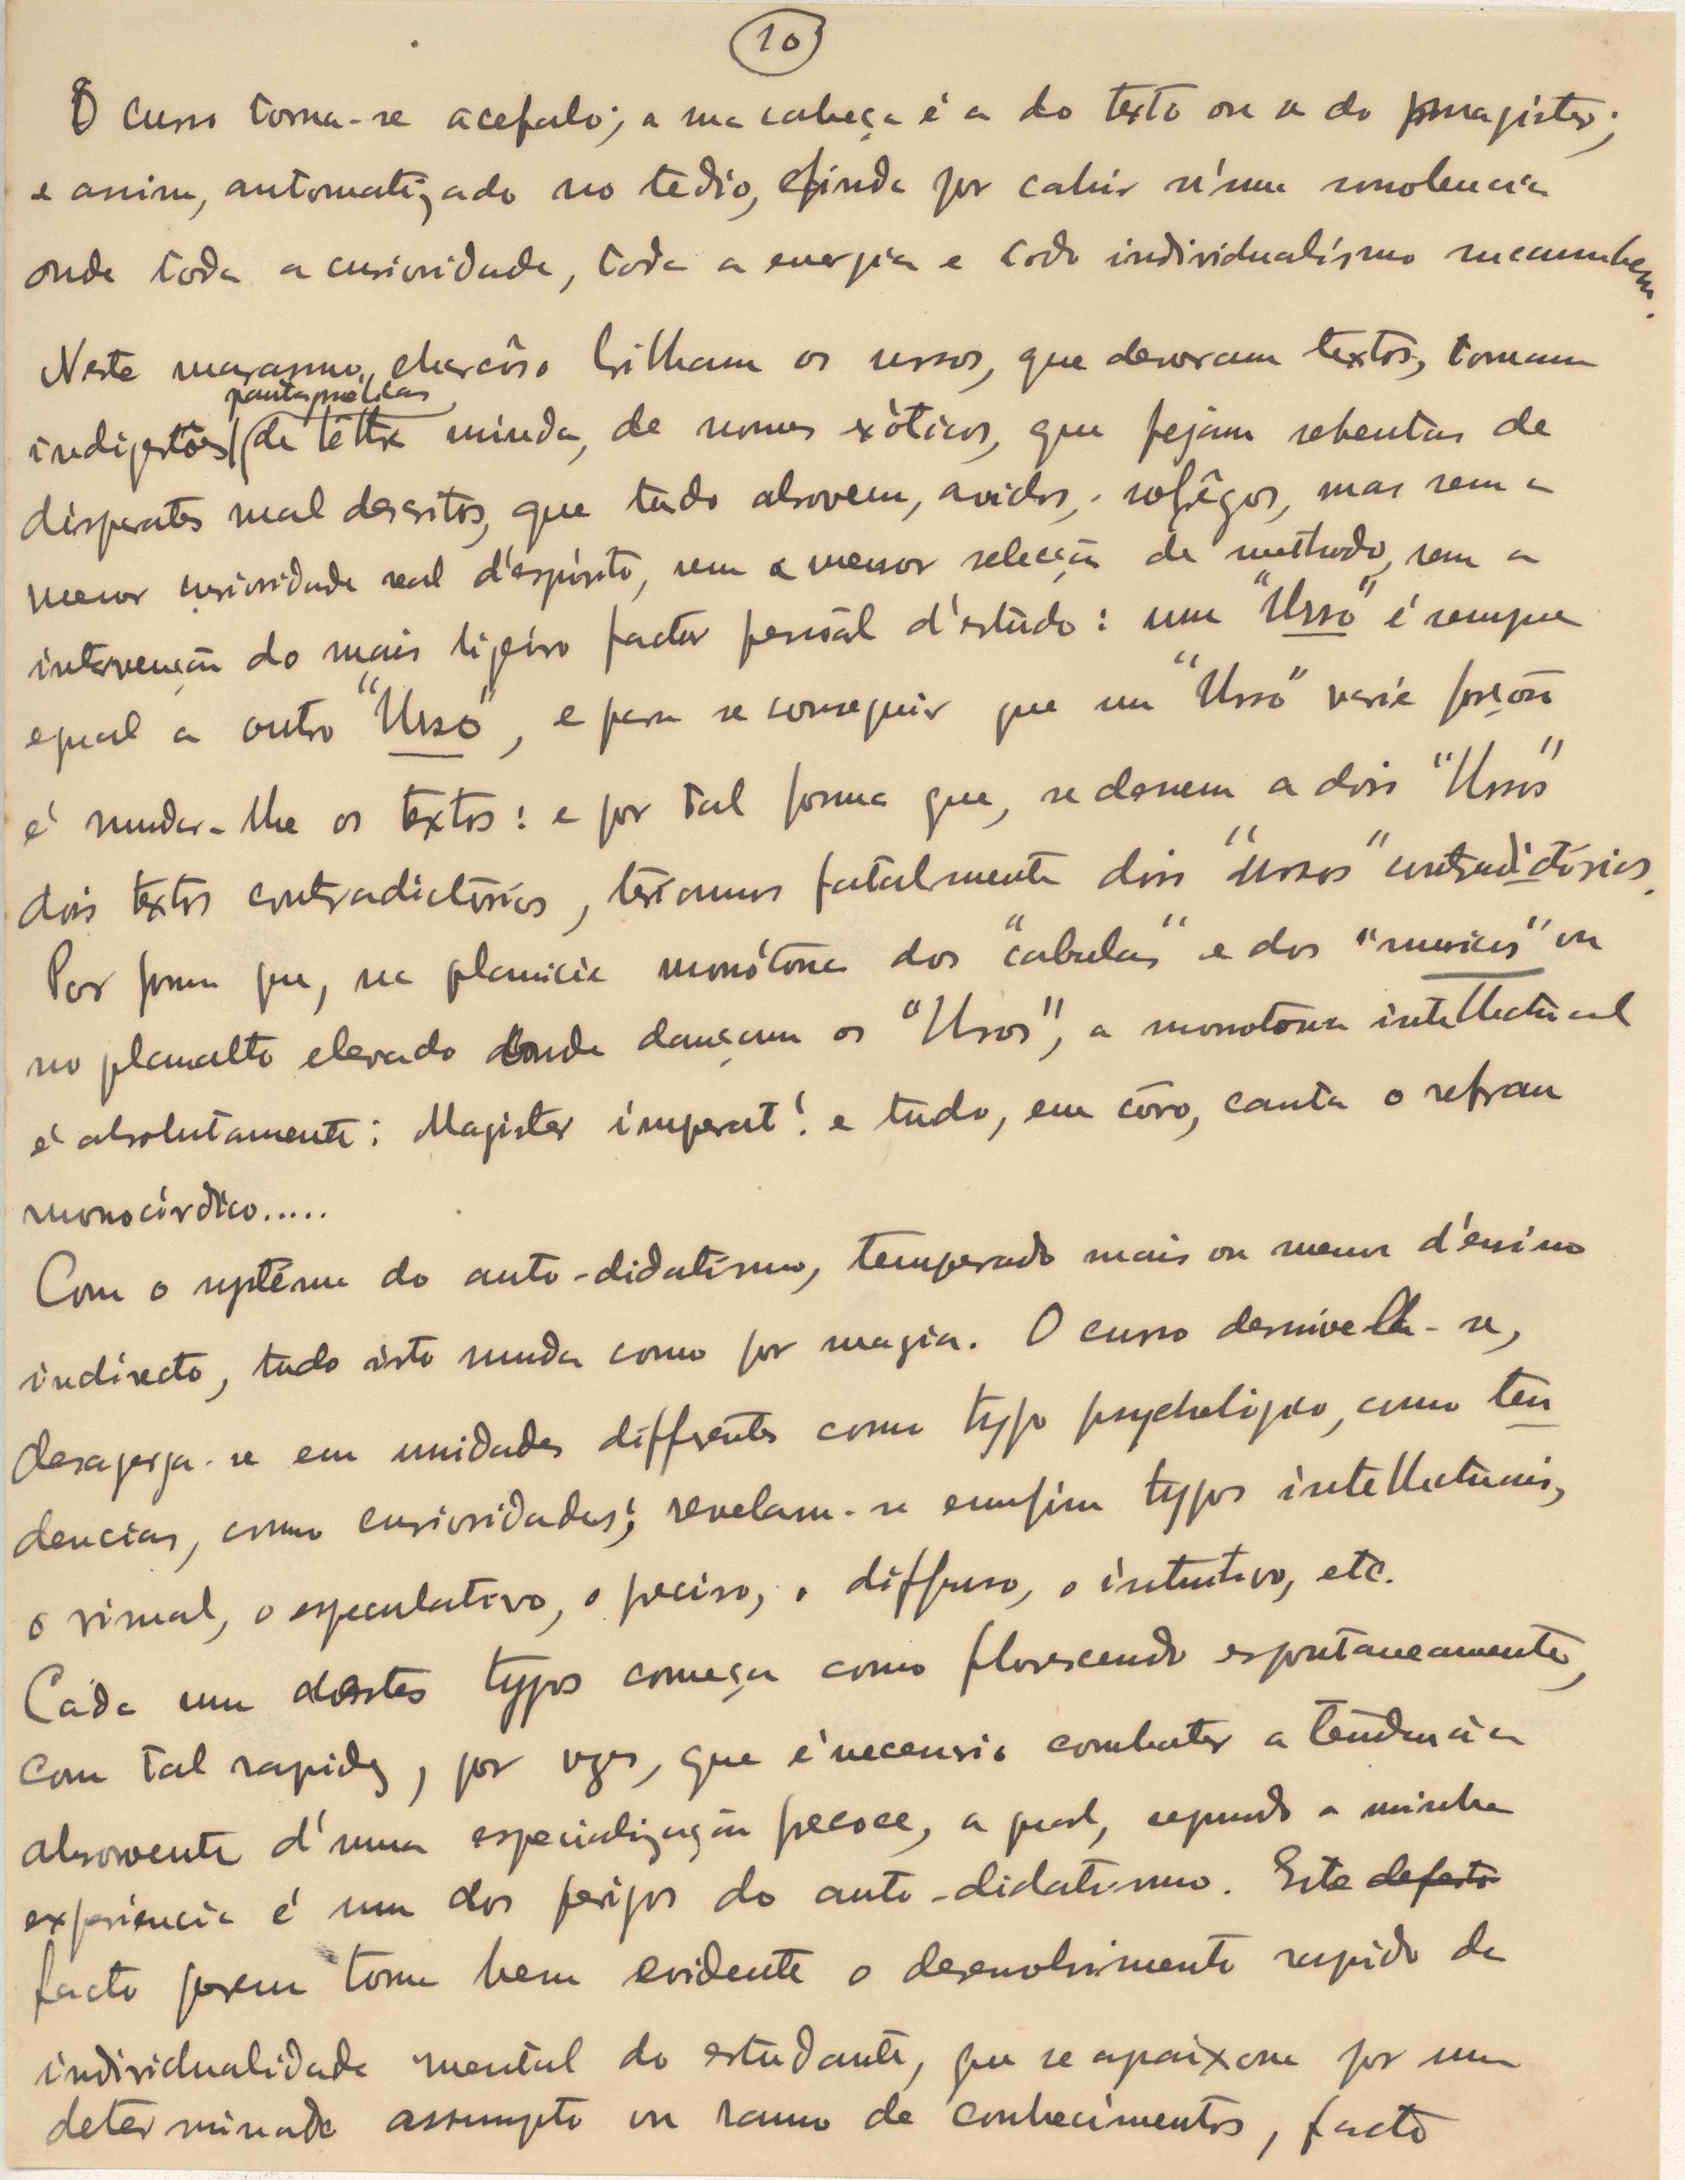 10
O curso torna-se acefalo; a sua cabeça é a do texto ou a do magister;
e assim, automatizado no tedio, finda por cahir n'uma sonolencia
onde toda a curiosidade, toda a energia e todo individualismo succumbem.
Neste marasmo brilham os ursos, que devoram textos, tomam
pantagruelicas
indigestões de lettra miuda, de nomes exòticos, que fejam sebentas de
disparates mal descritos, que tudo absorvem, avidos, sofrêgos, mas sem a
menor curiosidade real d'espirito, sem a menor selecção de methodo, sem a
intervenção do mais ligeiro factor pessoal d'estudo: um "Urso" é sempre
egual a outro "Urso", e para se conseguir que um "Urso" varie forçoso
é mudar-lhe os textos: e por tal forma que, se dessem a dois "Ursos"
dois textos contradictorios, teriamos fatalmente dois "Ursos" contradictorios.
Por forma que, na planicie monótona dos "cabulas" e dos "medios" ou
no planalto elevado onde dançam os "Ursos", a monotonia intellectual
é absolutamente: Magister imperat! e tudo, em côro, canta o refran
monocórdico.....
Com o systema do auto-didatismo, temperado mais ou menos d'ensino
indirecto, tudo isto muda como por magia. O curso desnivella-se,
desagrega-se em unidades differentes como typo psychologico, como ten
dencias, como curiosidades; revelam-se emfim typos intellectuais,
o visual, o especulativo, o preciso, o diffuso, o intuitivo, etc.
Cada um destes typos começa como florescendo espontaneamente,
com tal rapidez, por vezes, que é necessario combater a tendencia
absorvente d'uma especialização precoce, a qual, segundo a minha
experiencia é um dos perigos do auto-didatismo. Este defeito
facto porem torna bem evidente o desenvolvimento rapido da
individualidade mental do estudante, que se apaixona por um
determinado assumpto ou ramo de conhecimentos, facto